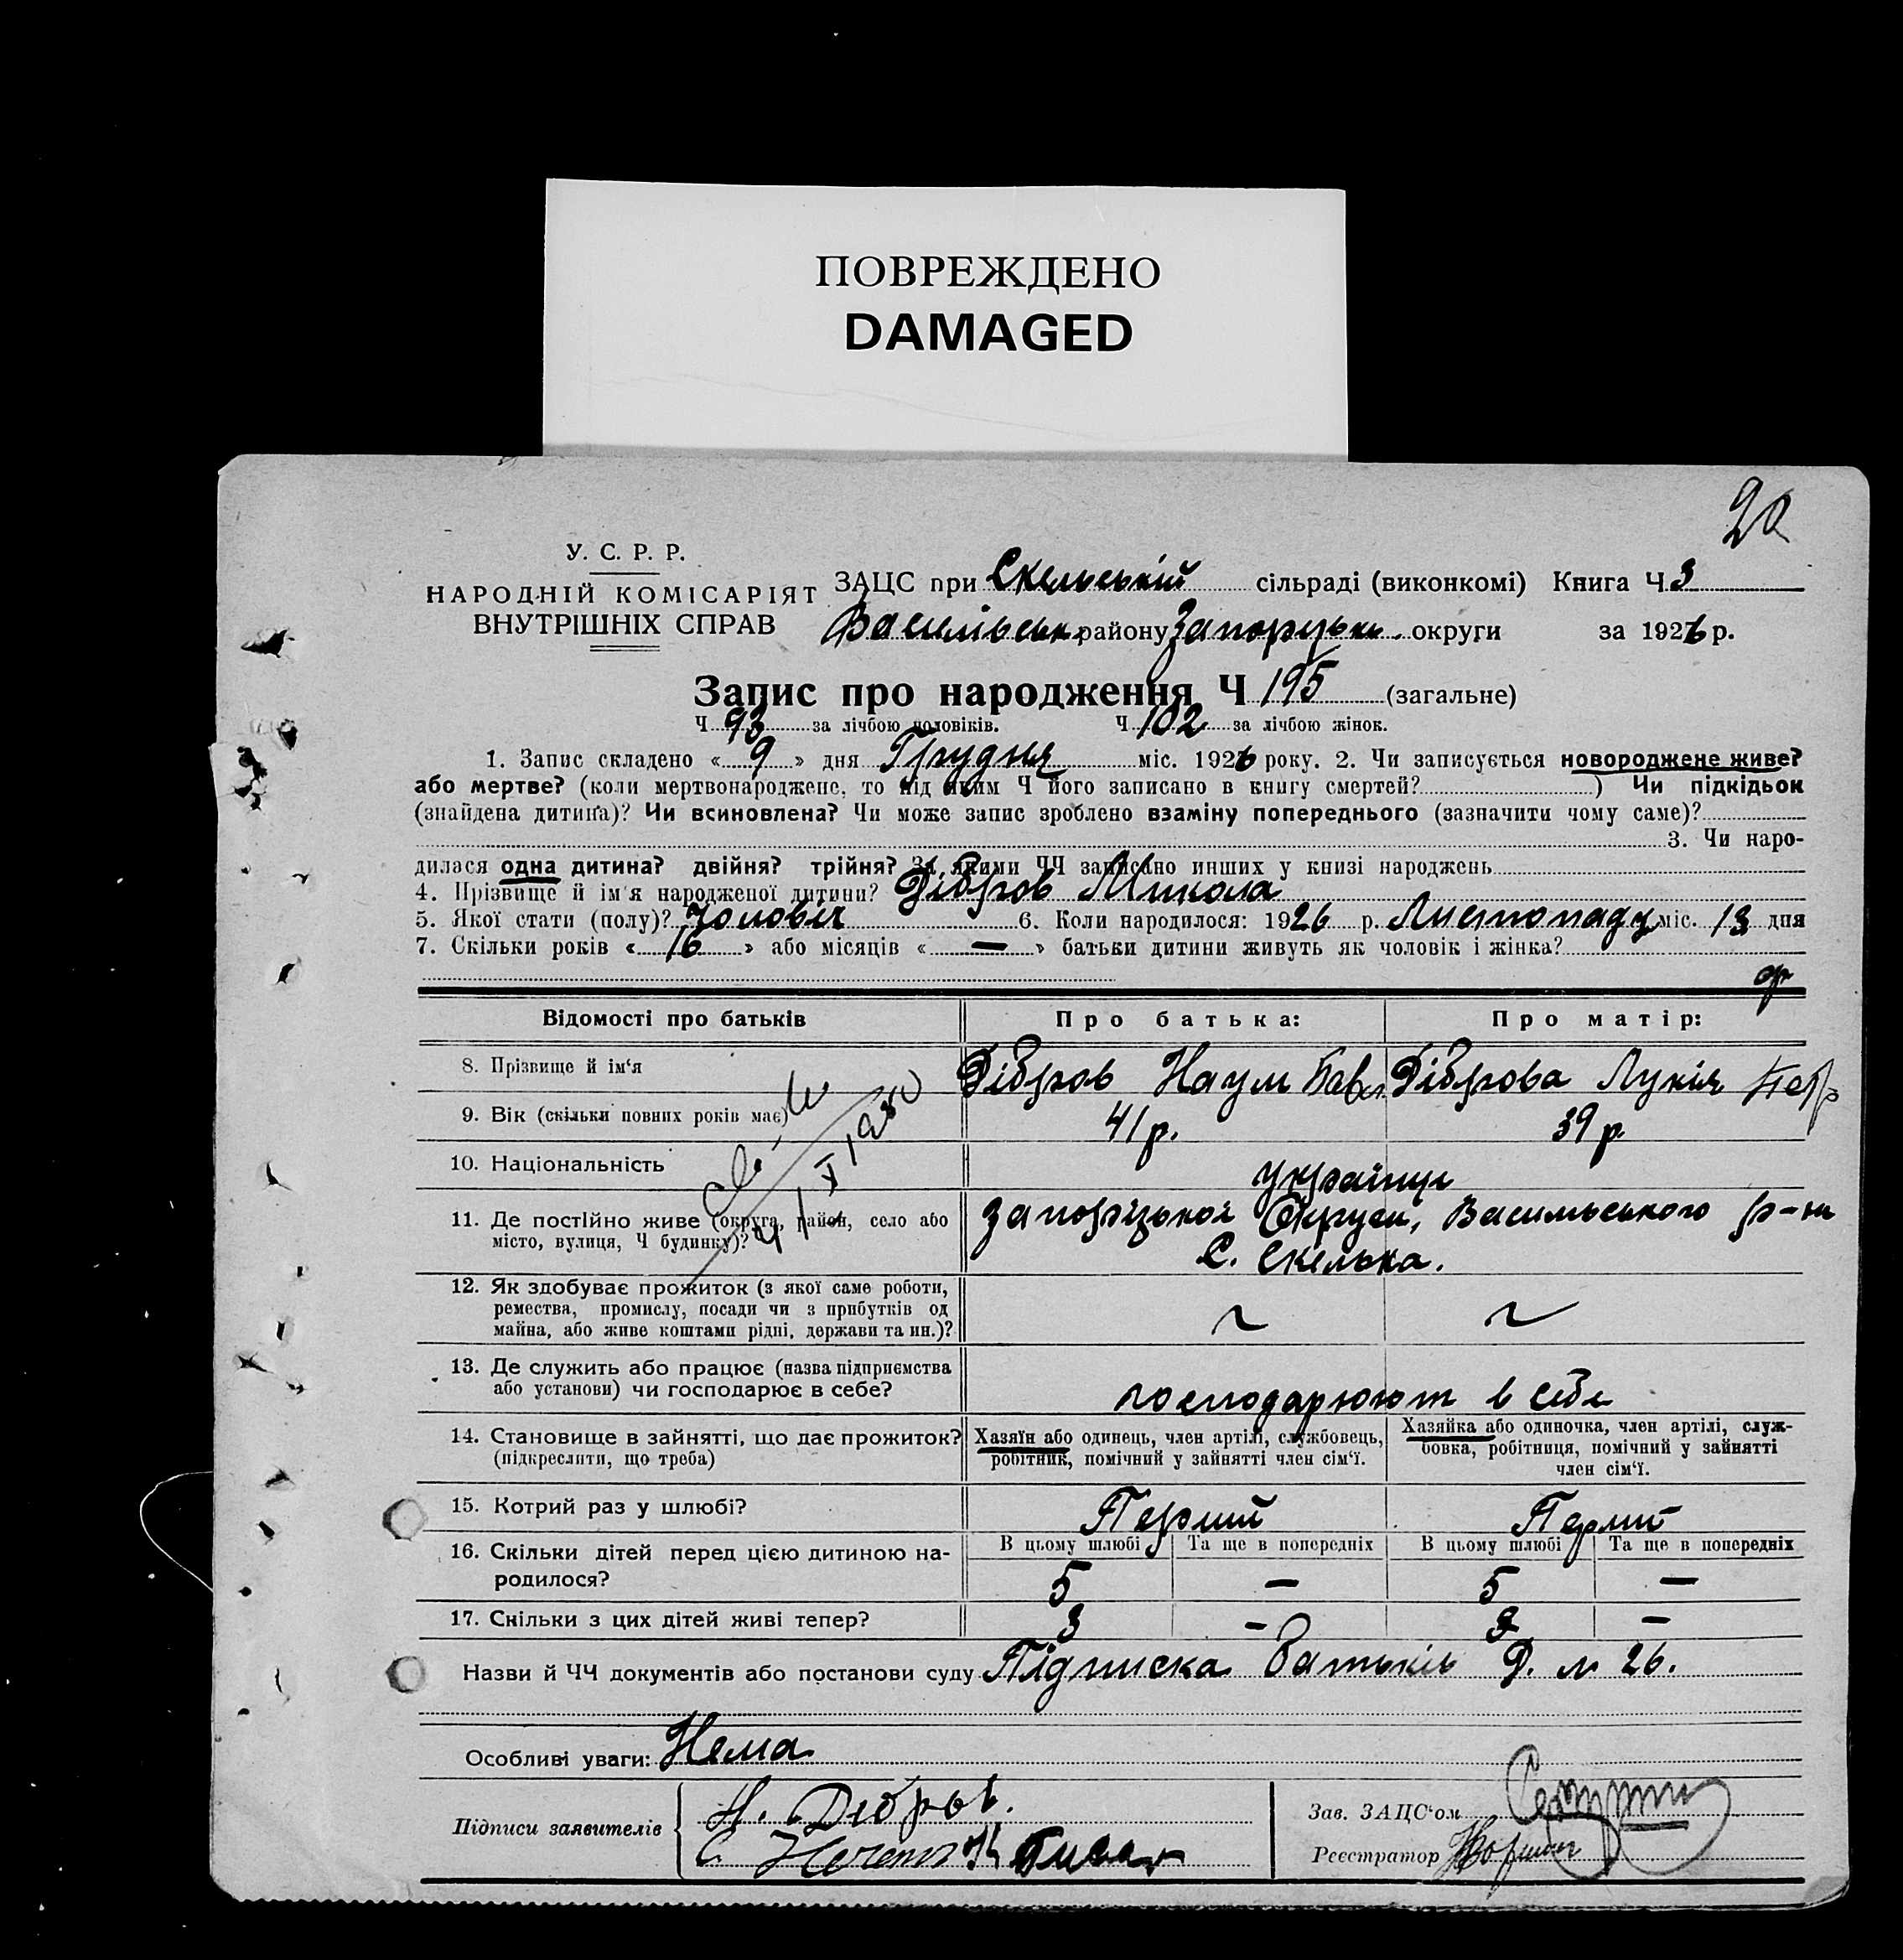 ПОВРЕЖДЕНО
DAMAGED
20
У. С. Р. Р.
НАРОДНІЙ КОМІСАРІЯТ
ВНУТРІШНІХ СПРАВ
ЗАЦС при Скельській сільраді (виконкомі) Книга Ч 3
Василівськ. району Запорузьк. округи за 1926 р.
Запис про народження Ч 195 (загальне)
Ч 93 за лічбою чоловіків. Ч 102 за лічбою жінок.
1. Запис складено « 9 » дня Грудня міс. 1926 року. 2. Чи записується новороджене живе?
або мертве? (коли мертвонароджене, то під яким Ч його записано в книгу смертей? ) Чи підкідьок
(знайдена дитина)? Чи всиновлена? Чи може запис зроблено взаміну попереднього (зазначити чому саме)?
3. Чи наро-
дилася одна дитина? двійня? трійня? За якими ЧЧ записано инших у книзі народжень
4. Прізвище й ім'я народженої дитини? Дібров Микола
5. Якої стати (полу)? Чоловіч 6. Коли народилося: 1926 р. Листопаду міс. 13 дня
7. Скільки років « 16 » або місяців « — » батьки дитини живуть як чоловік і жінка?
Відомості про батьків Про батька: Про матір:
8. Прізвище й ім'я Дібров Наум Павл Діброва Лукія Петр
9. Вік (скільки повних років має) 41 р. 39 р.
10. Національність українці
11. Де постійно живе (округа, район, село або Запоріzької Округи, Васильського р-ну
місто, вулиця, Ч будинку)? С. Скелька.
12. Як здобуває прожиток (з якої саме роботи,
ремества, промислу, посади чи з прибутків од
майна, або живе коштами рідні, держави та ин.)?
13. Де служить або працює (назва підприємства
або установи) чи господарює в себе? господарюют в себе
14. Становище в зайнятті, що дає прожиток? Хазяїн або одинець, член артілі, службовець, Хазяйка або одиночка, член артілі, служ-
(підкреслити, що треба) робітник, помічний у зайнятті член сім'ї. бовка, робітниця, помічний у зайнятті
член сім'ї.
15. Котрий раз у шлюбі? Перший Перший
16. Скільки дітей перед цією дитиною на- В цьому шлюбі Та ще в попередніх В цьому шлюбі Та ще в попередніх
родилося? 5 — 5 —
17. Скільки з цих дітей живі тепер? 3 - 3 -
Назви й ЧЧ документів або постанови суду Підписка Батьків Д. № 26.
Особливі уваги: Нема
Підписи заявителів Н. Дібров.
Зав. ЗАЦС'ом
Реєстратор